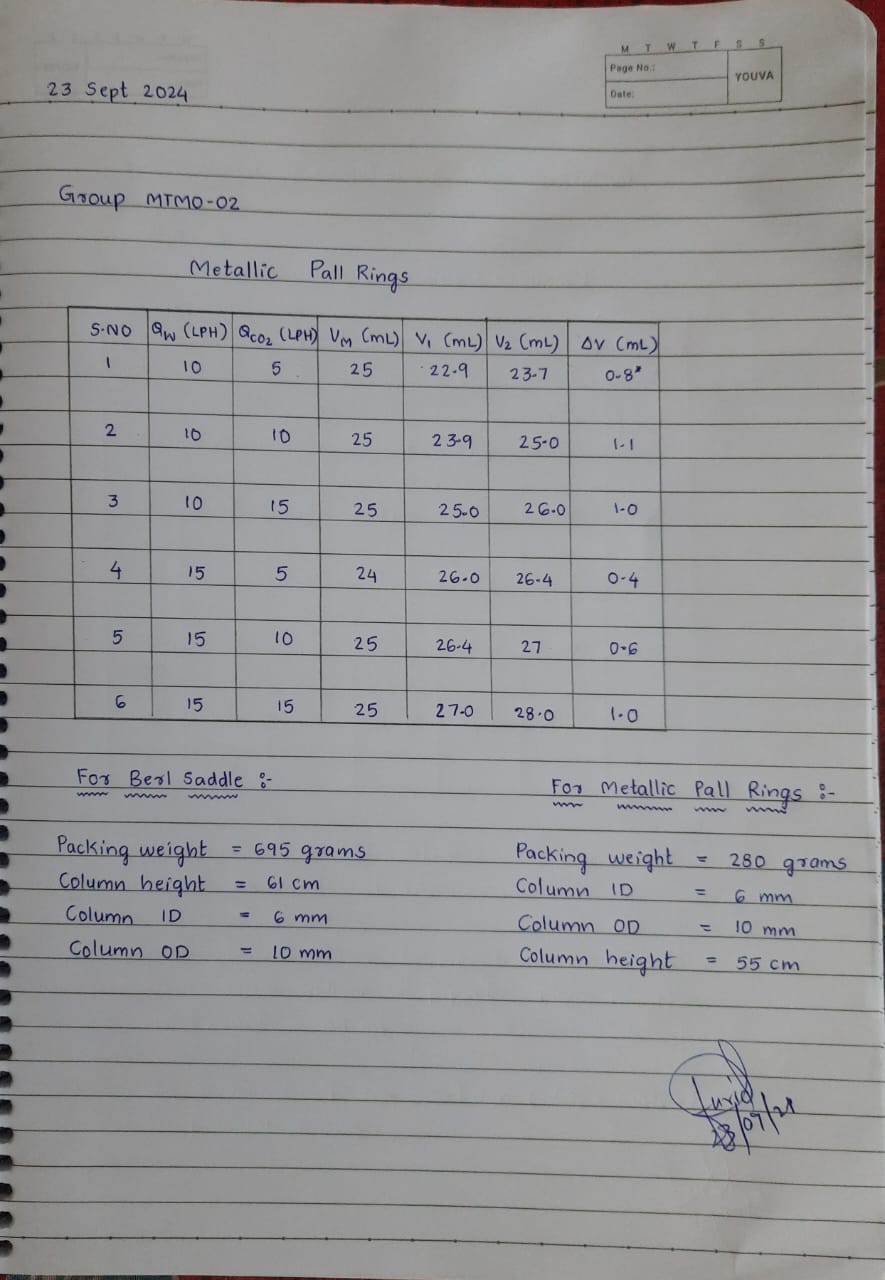 M T W T F S S
Page No.:
YOUVA
Date:
23 Sept 2024
Group MTMO-02
Metallic Pall Rings
S.NO Qw (LPH) QCO2 (LPH) VM (mL) V1 (mL) V2 (mL) ΔV (mL)
1 10 5 25 22.9 23.7 0.8
2 10 10 25 23.9 25.0 1.1
3 10 15 25 25.0 26.0 1.0
4 15 5 24 26.0 26.4 0.4
5 15 10 25 26.4 27 0.6
6 15 15 25 27.0 28.0 1.0
For Berl Saddle :-
Packing weight = 695 grams
Column height = 61 cm
Column ID = 6 mm
Column OD = 10 mm
For Metallic Pall Rings :-
Packing weight = 280 grams
Column ID = 6 mm
Column OD = 10 mm
Column height = 55 cm